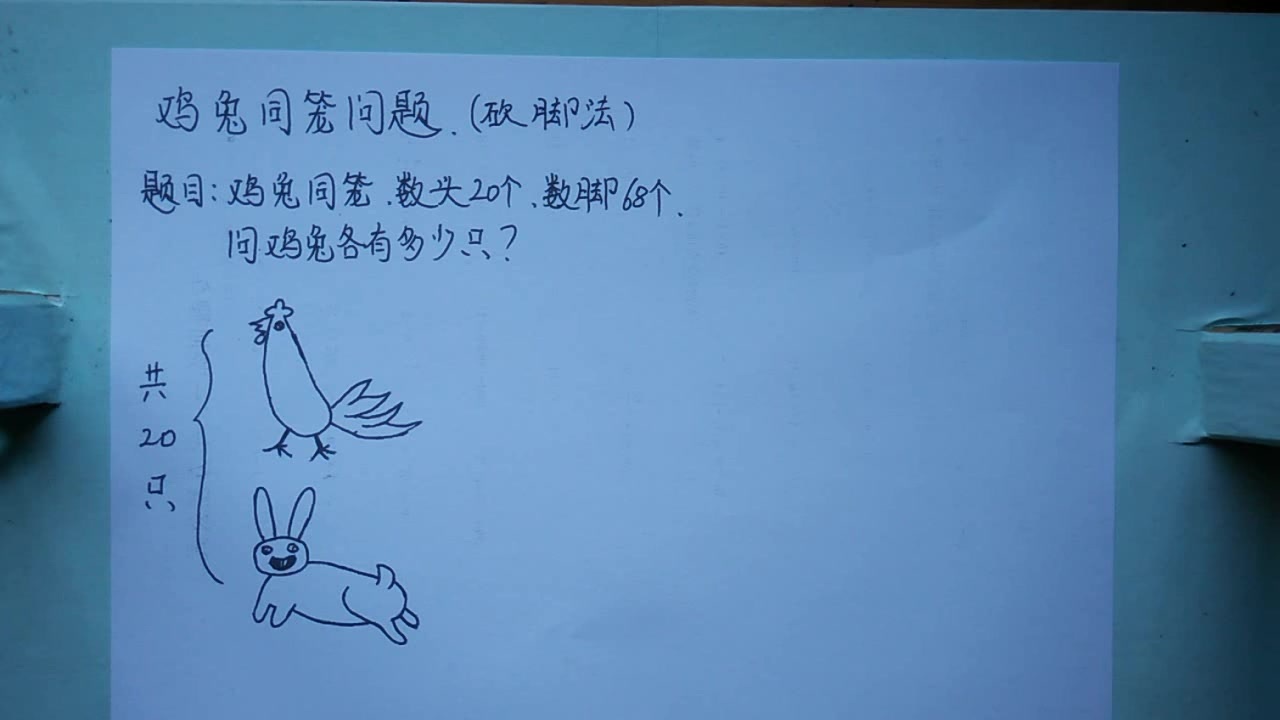 鸡兔同笼问题.(砍脚法)
题目:鸡兔同笼.数头20个.数脚68个.
问鸡兔各有多少只?
共
20
只